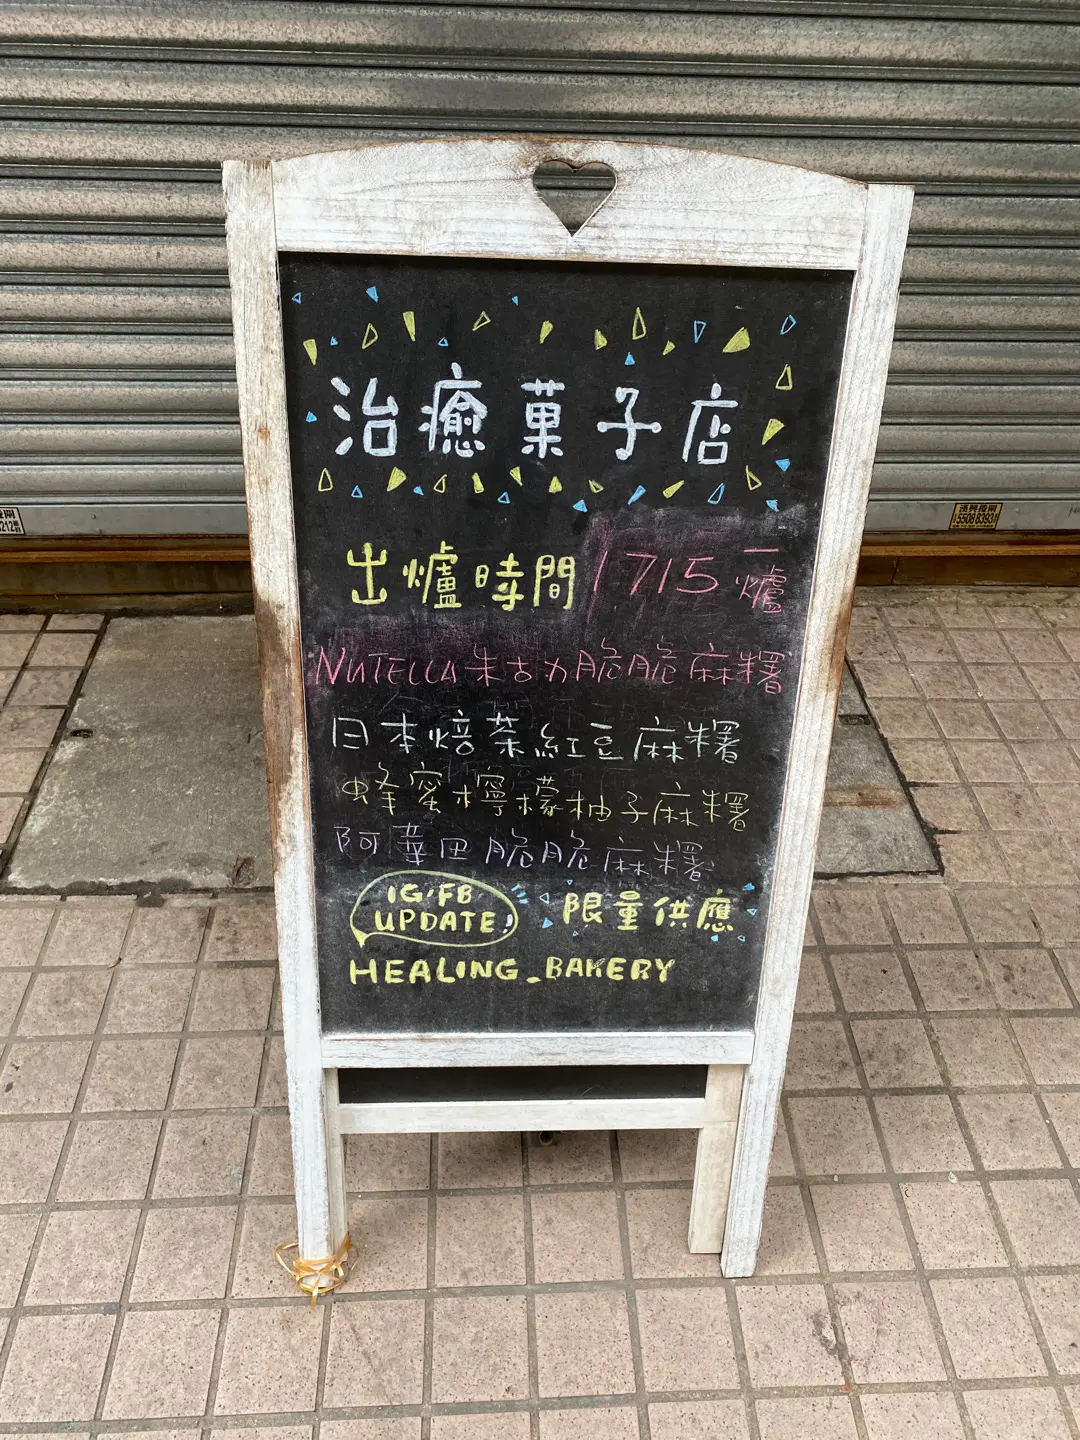 治癒菓子店
出爐時間 1715 一爐
NUTELLA 朱古力脆脆麻糬
日本焙茶紅豆麻糬
蜂蜜檸檬柚子麻糬
阿華田脆脆麻糬
IG/FB
UPDATE!
限量供應
HEALING_BAKERY
55088393